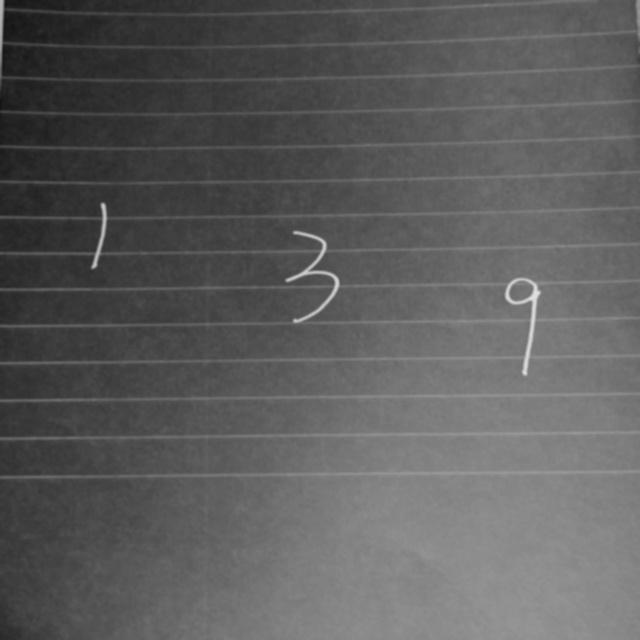 1 3 9